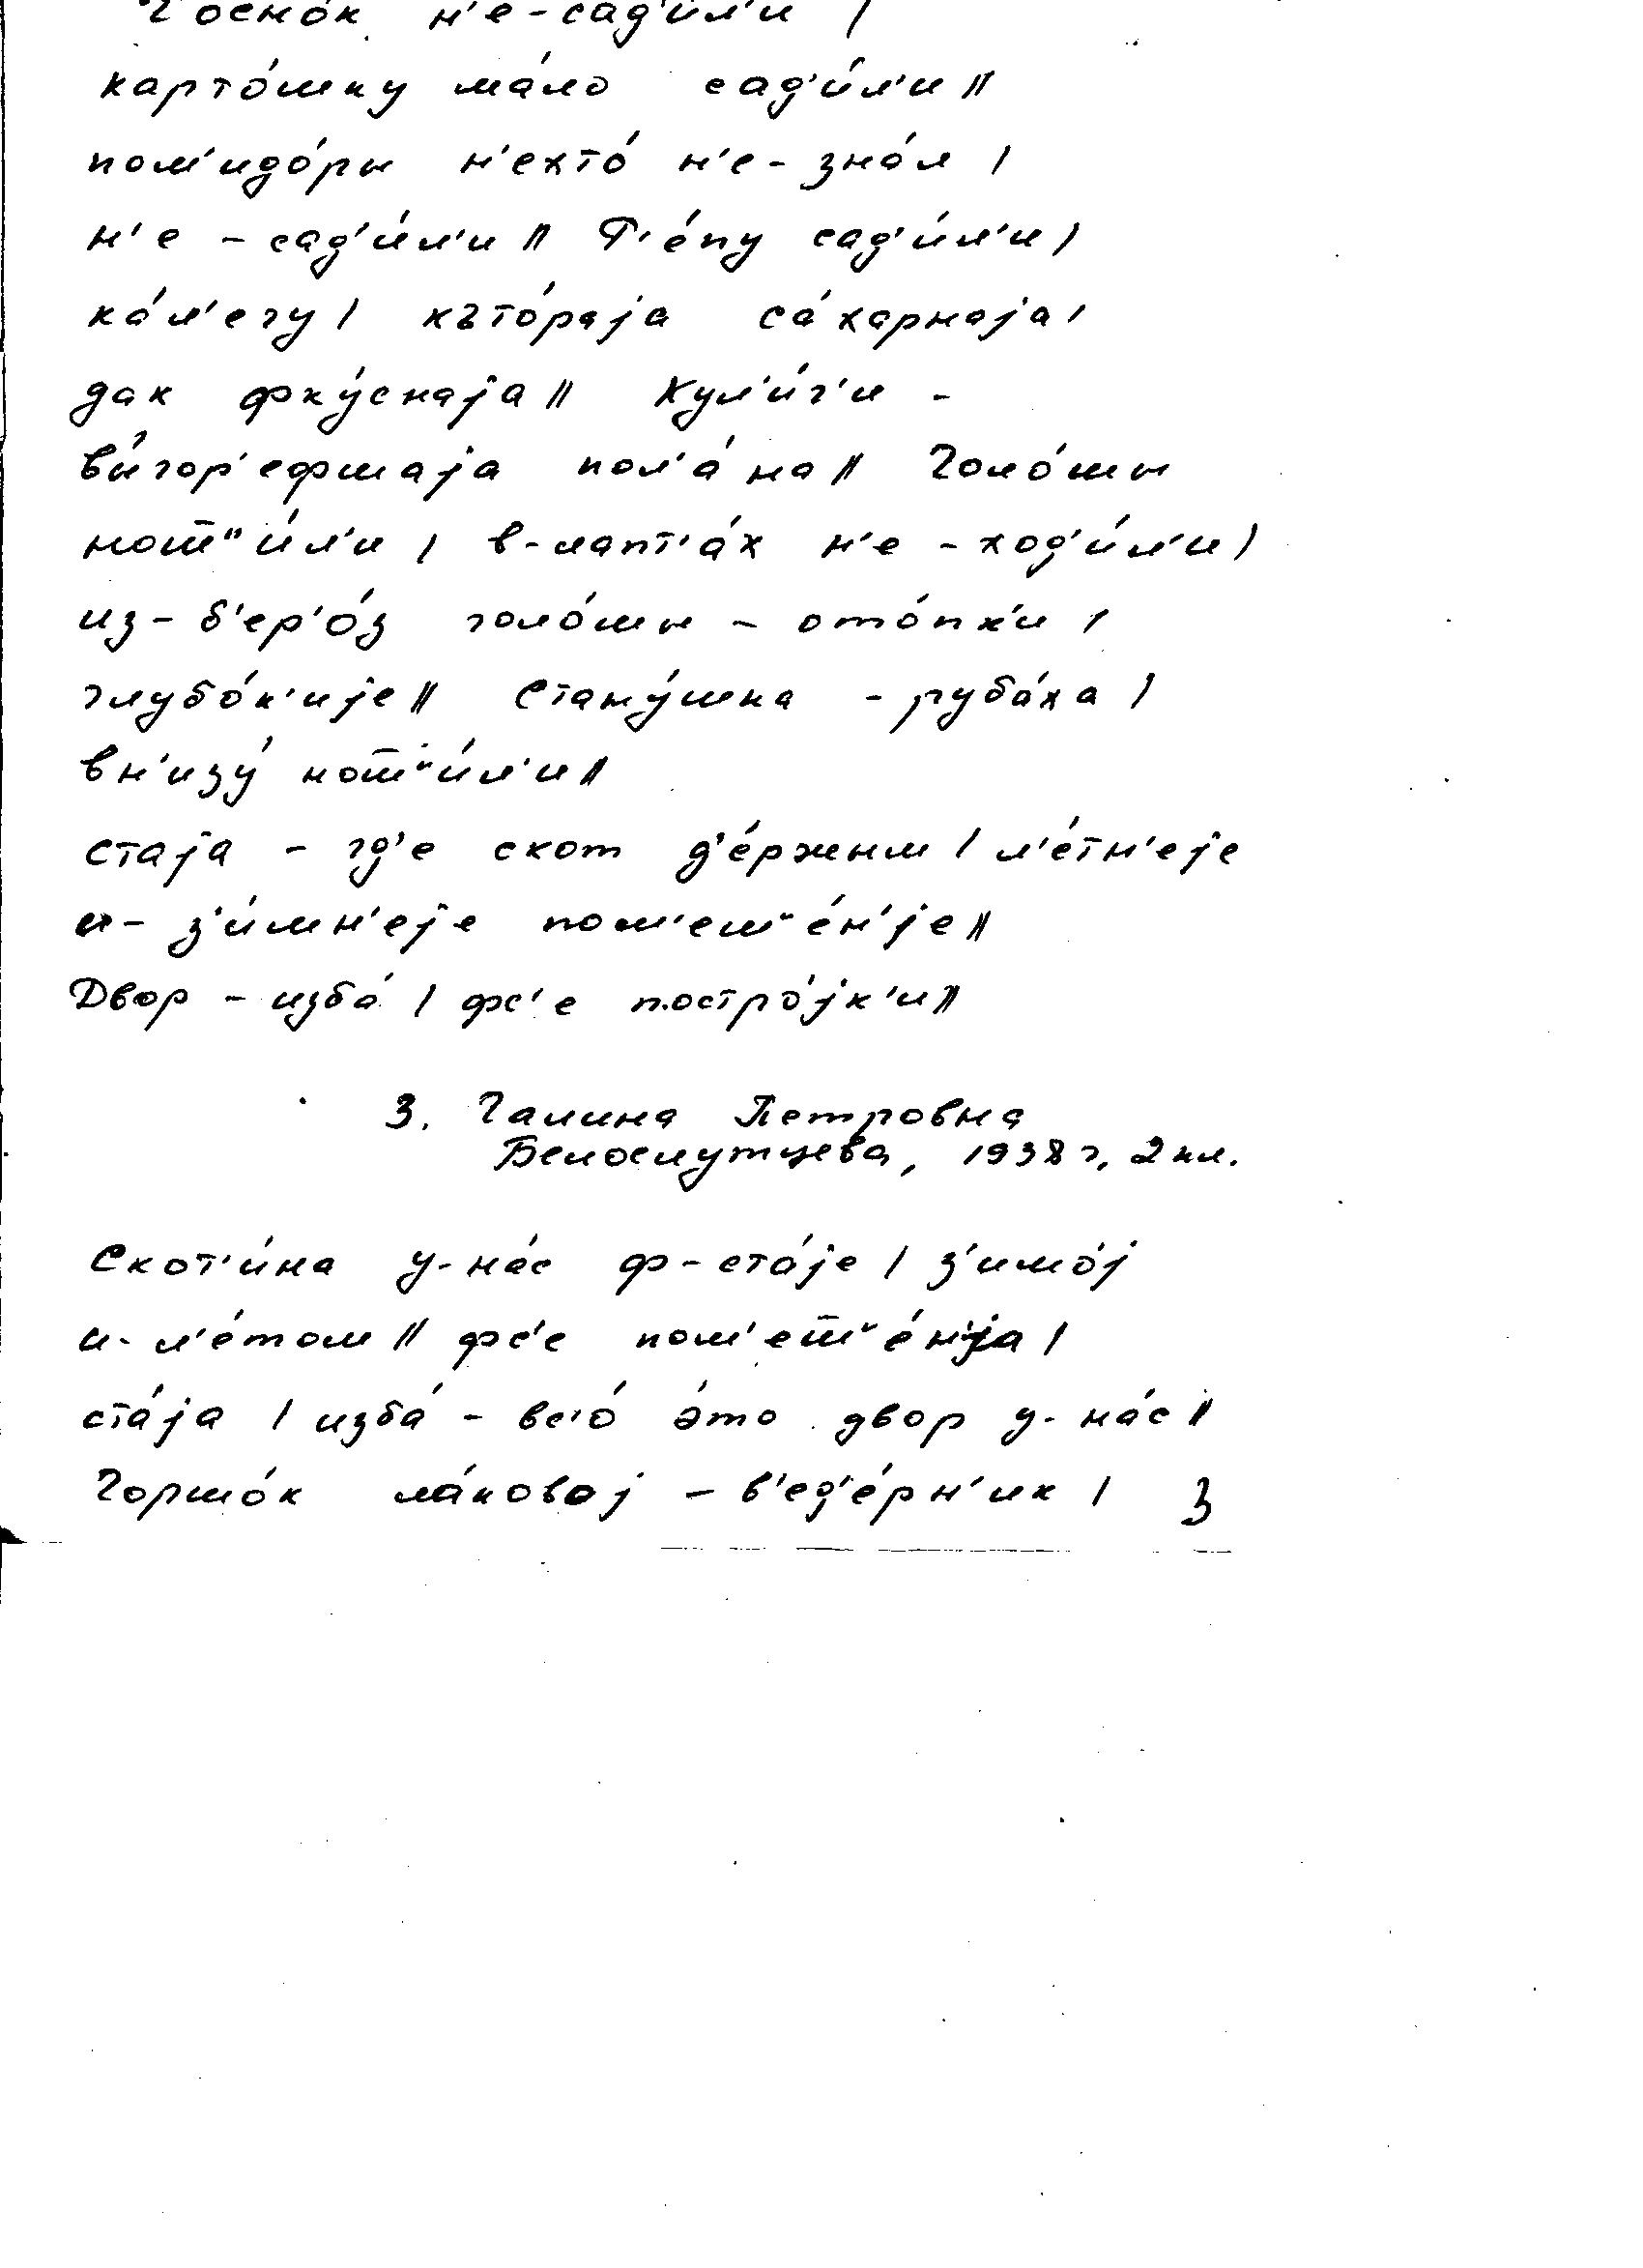 Чоснóк н'е-сад'и́л'и |
картóшку мáло сад'и́л'и ||
пом'идóры н'ехтó н'е-знáл |
н'е-сад'и́л'и || Р'éпу сад'и́л'и |
кáл'егу | кътóраjа сáхарнаjа |
дак фкýснаjа || Кул'и́г'и -
вы́гор'ефшаjа пол'áна || Голóшы
нош" и́л'и | в-лапт'áх н'е-ход'и́л'и |
из-б'ер'óз голóшы - отóпк'и |
глубóк'иjе || Станýшка - рубáха |
вн'изý нош"и́л'и ||
стаjа - гд'е скот д'éржым | л'éтн'еjе
и- з'и́мн'еjе пом'еш"éн'jе ||
Двор - избá | фс'е пострójк'и ||
3. Галина Петровна
Белослутцева, 1938 г, 2 кл.
Скот'и́на у-нáс ф-стájе | з'имój
и-л'éтом || фс'е пом'еш"éн'jа |
стájа | избá - вс'ó э́то двор у-нáс ||
Горшóк лáковоj - в'ед'éрн'ик | 3